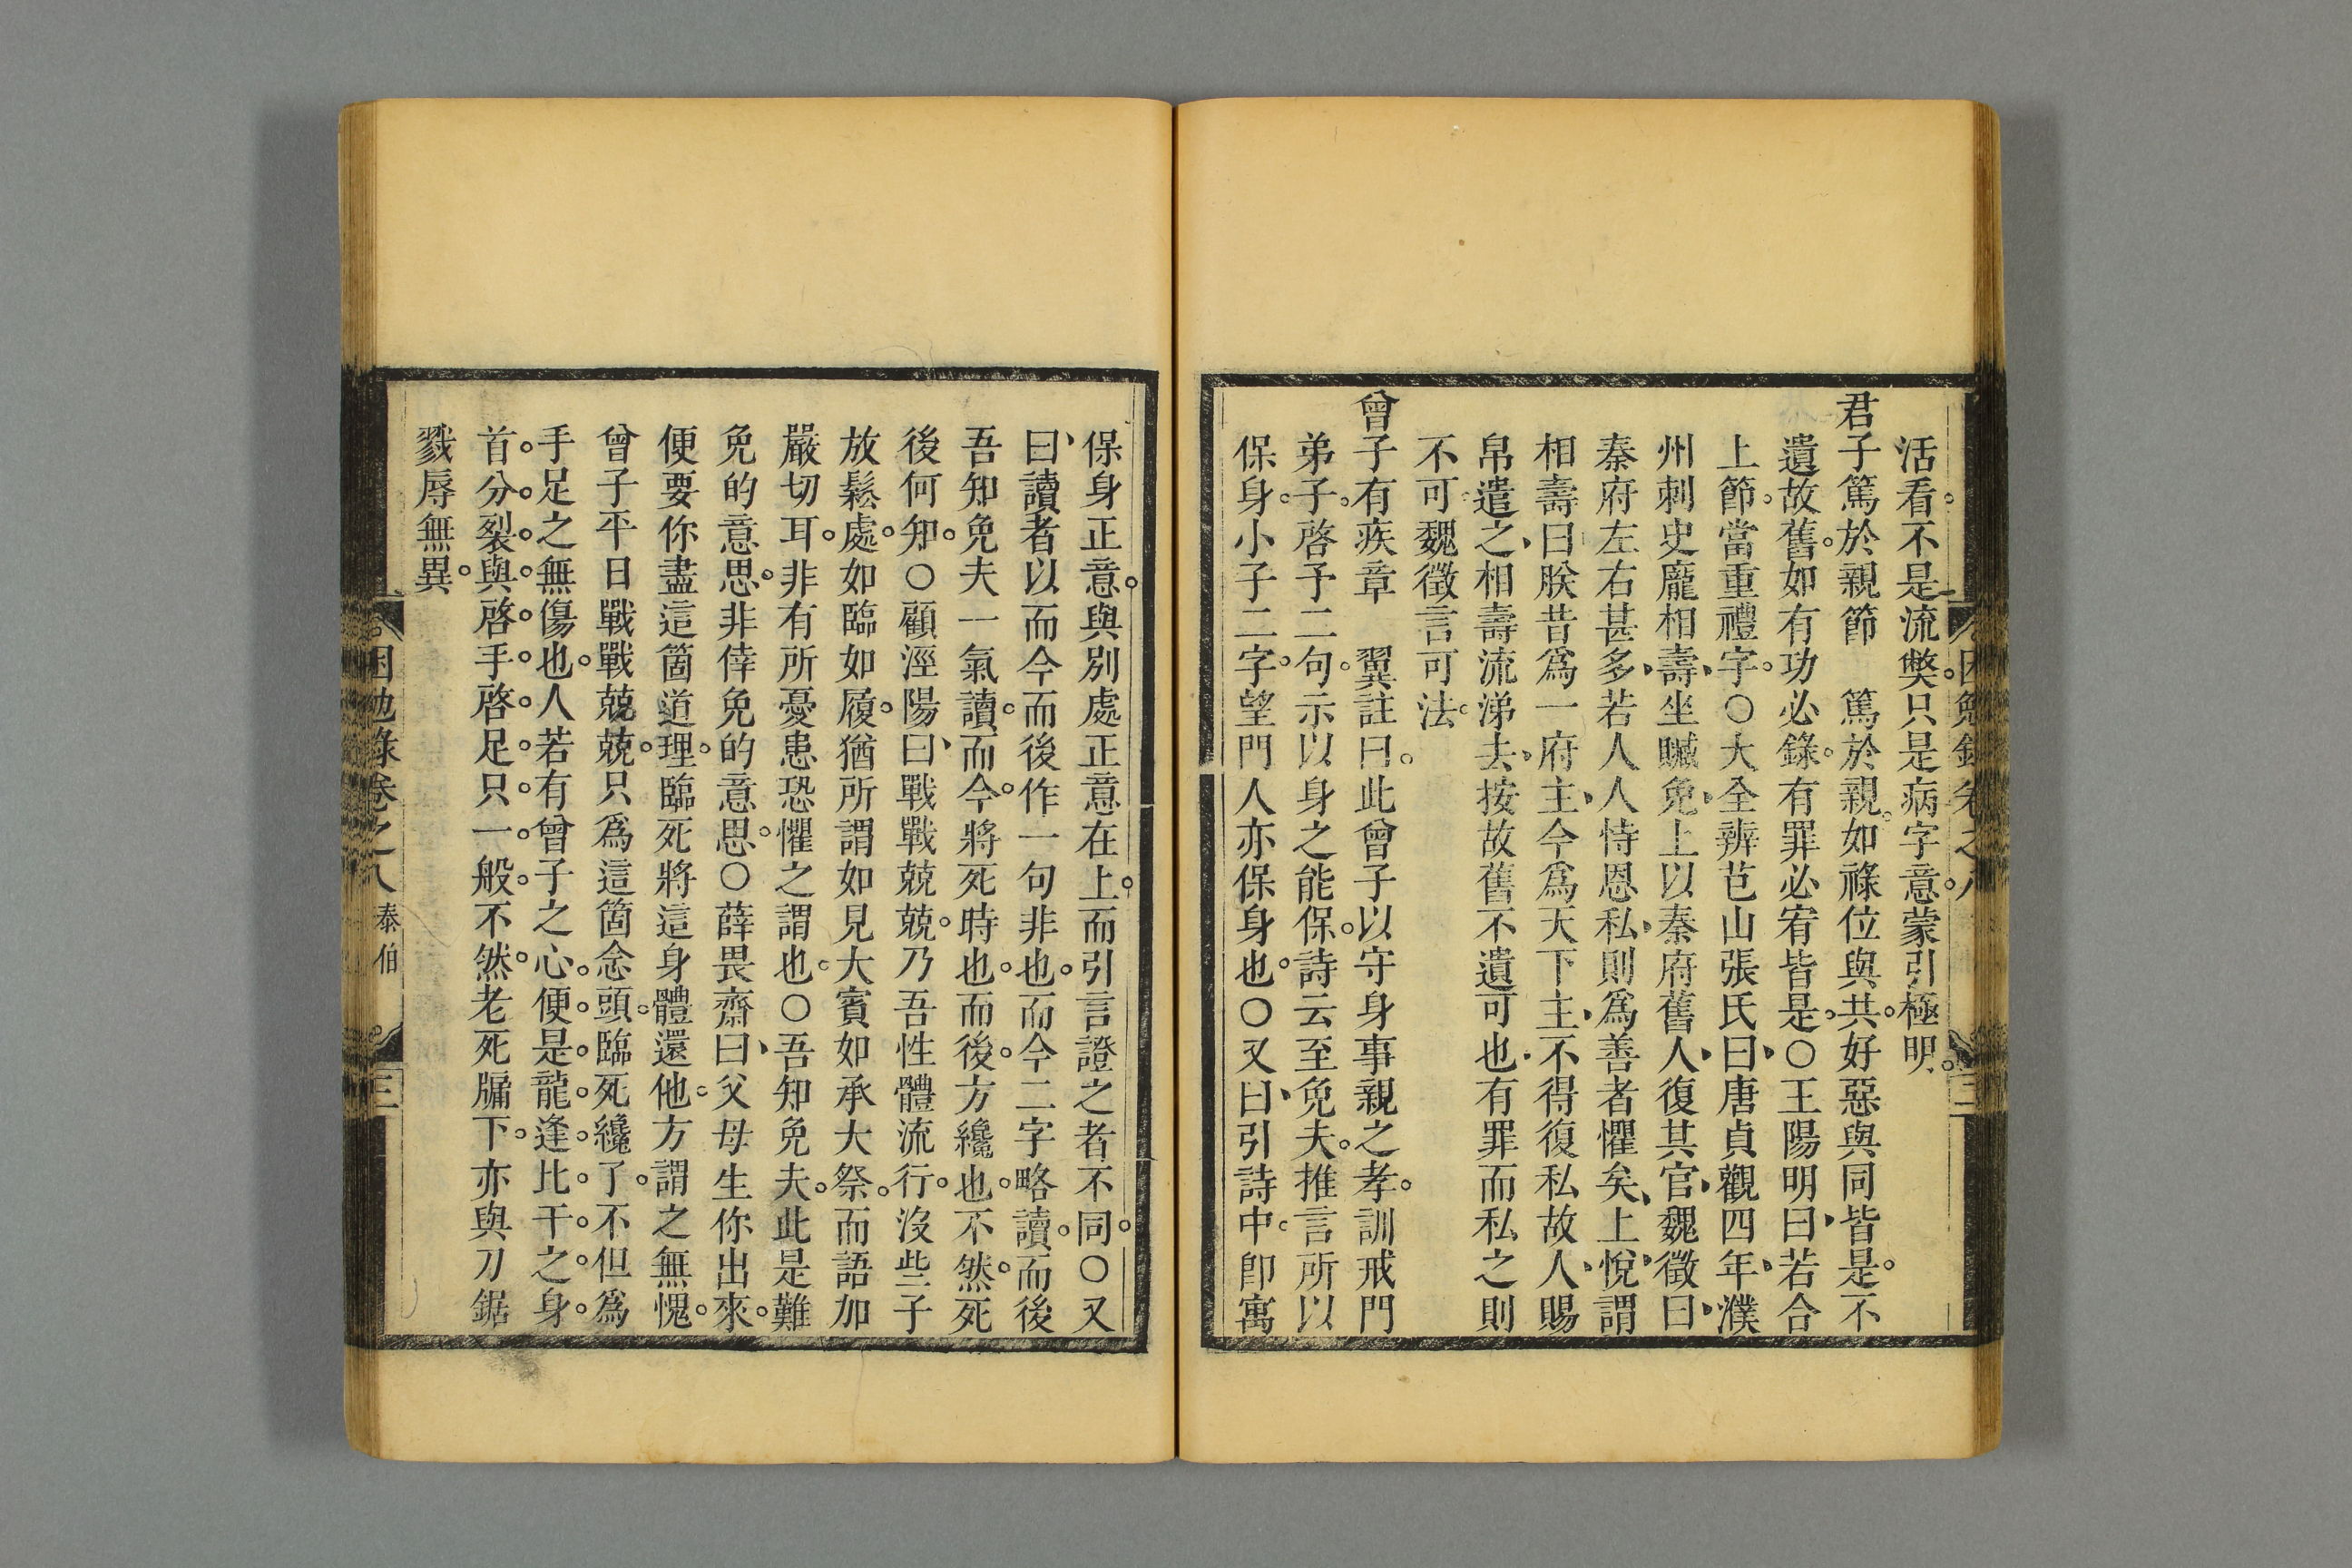 活看。不是流獘。只是病字意。蒙引極明。
君子篤於親節　篤於親。如祿位與共。好惡與同皆是。不
遺故舊。如有功必錄。有罪必宥皆是。○王陽明曰、若合
上節。當重禮字。○大全辨芑山張氏曰、唐貞觀四年、濮
州刺史龐相壽、坐贓免、上以秦府舊人、復其官、魏徵曰、
秦府左右甚多、若人人恃恩私、則爲善者懼矣、上悅、謂
相壽曰、朕昔爲一府主、今爲天下主、不得復私故人、賜
帛遣之、相壽流涕去、按故舊不遺可也、有罪而私之則
不可。魏徵言可法。
曾子有疾章　翼註曰。此曾子以守身事親之孝。訓戒門
弟子。啓予二句。示以身之能保。詩云至免夫。推言所以
保身。小子二字。望門人亦保身也。○又曰、引詩中。卽寓
保身正意。與別處正意在上。而引言證之者不同。○又
曰、讀者以而今而後作一句非也。而今二字略讀。而後
吾知免夫一氣讀。而今。將死時也。而後。方纔也。不然。死
後何知。○顧涇陽曰、戰戰兢兢。乃吾性體流行。沒些子
放鬆處。如臨如履。猶所謂如見大賓如承大祭。而語加
嚴切耳。非有所憂患恐懼之謂也。○吾知免夫。此是難
免的意思。非倖免的意思。○薛畏齋曰、父母生你出來。
便要你盡這箇道理。臨死將這身體還他。方謂之無愧。
曾子平日戰戰兢兢。只爲這箇念頭。臨死纔了。不但爲
手足之無傷也。人若有曾子之心。便是龍逢比干之身
首分裂。與啓手啓足只一般。不然。老死牖下。亦與刀鋸
戮辱無異。
困勉錄卷之八　泰伯　三